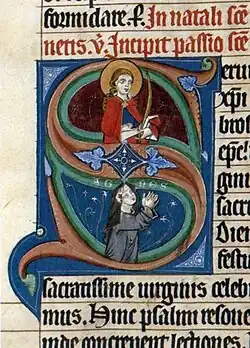 formidare. R. In natali scē
netis. v̄. Incipit passio scē
erui
xp̄i
bros
ep̄e
gini
sacr
Dier
festu
AGNES
sacratissime uirginis celeb
mus. Hinc psalm resone
inde concrepent lectiones.